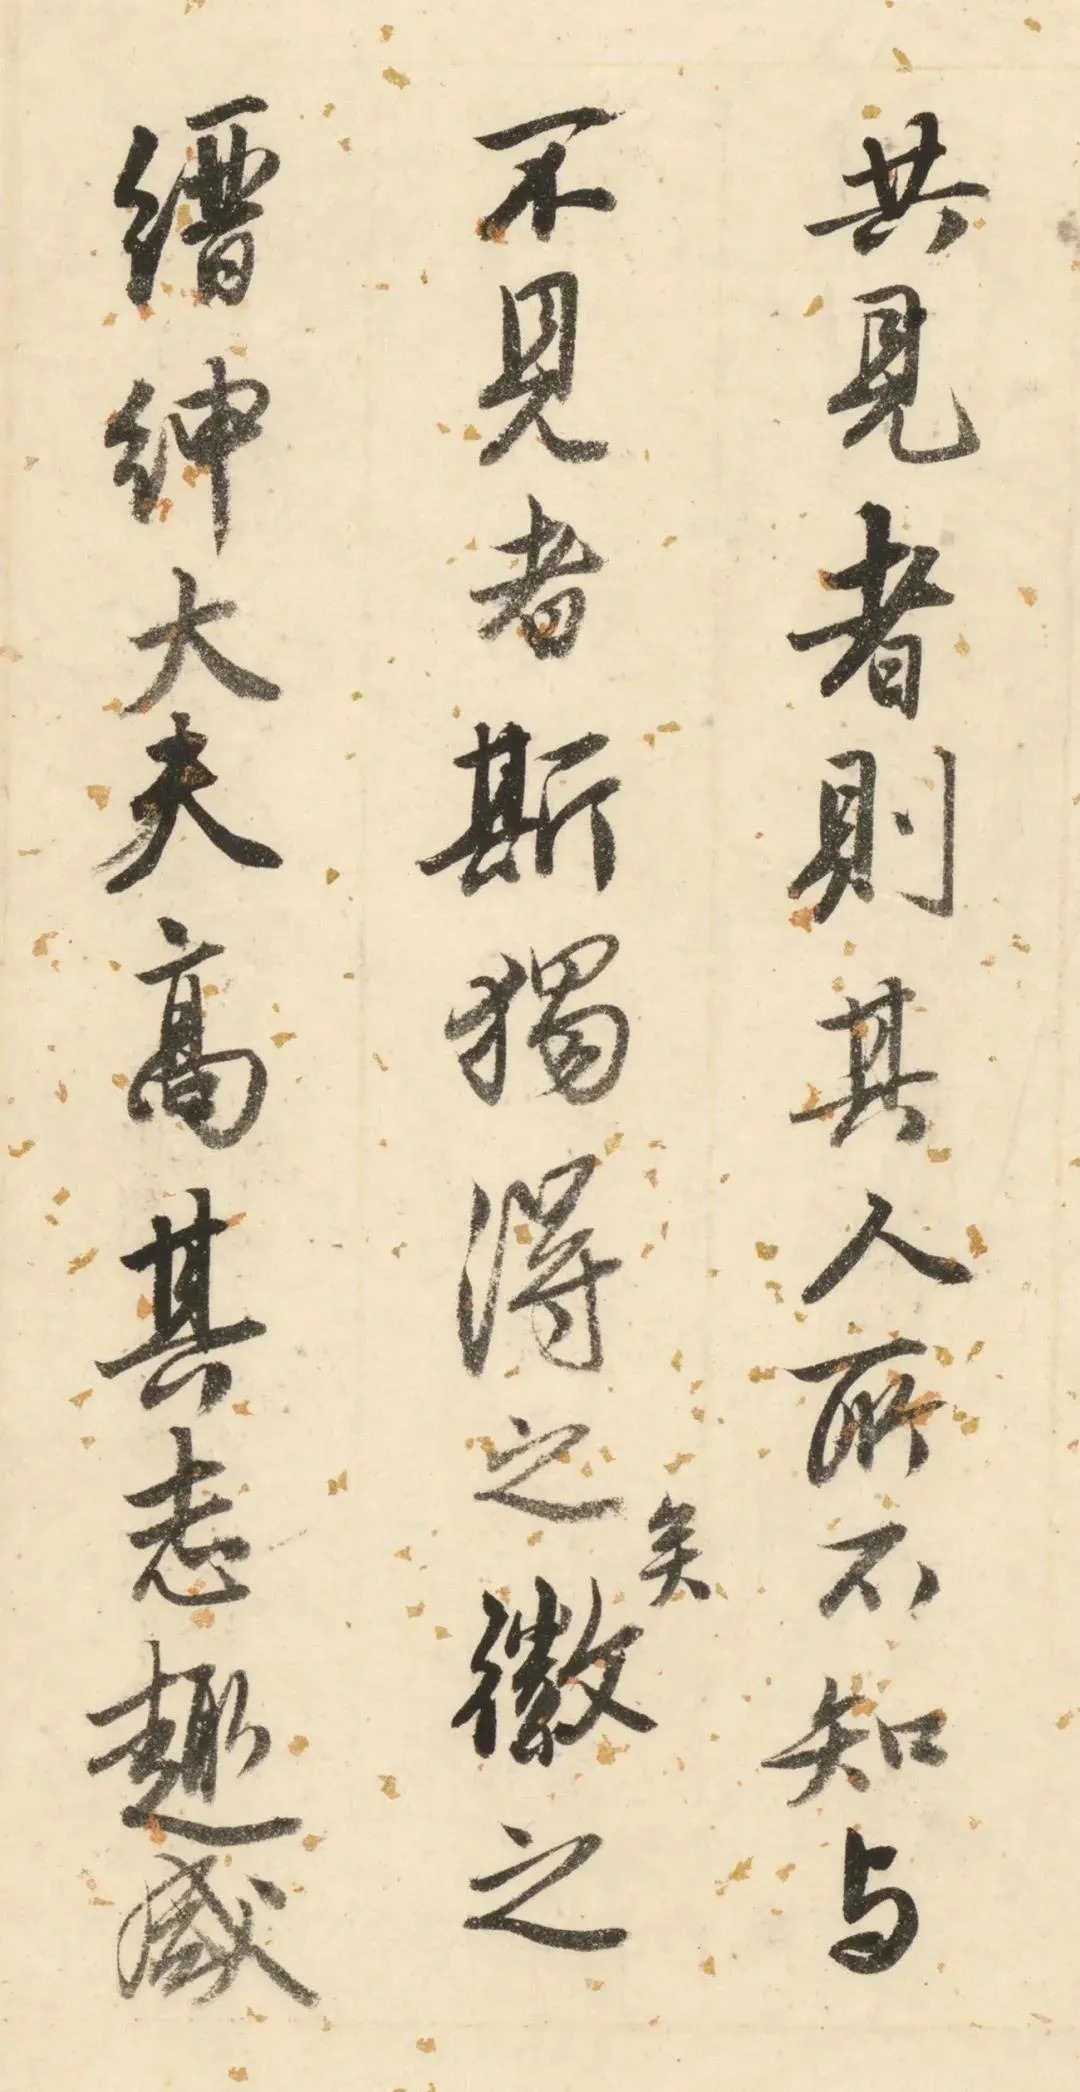 共見者則其人所不知与
不見者斯獨得之矣徵之
縉紳大夫高其志趣咸